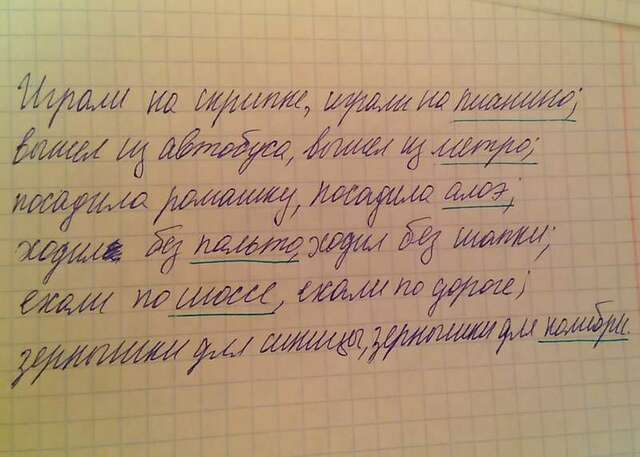 Играли на скрипке, играли на пианино;
вышел из автобуса, вышел из метро;
посадила ромашку, посадила алоэ;
ходил без пальто, ходил без шапки;
ехали по шоссе, ехали по дороге;
зернышки для синицы, зернышки для колибри.